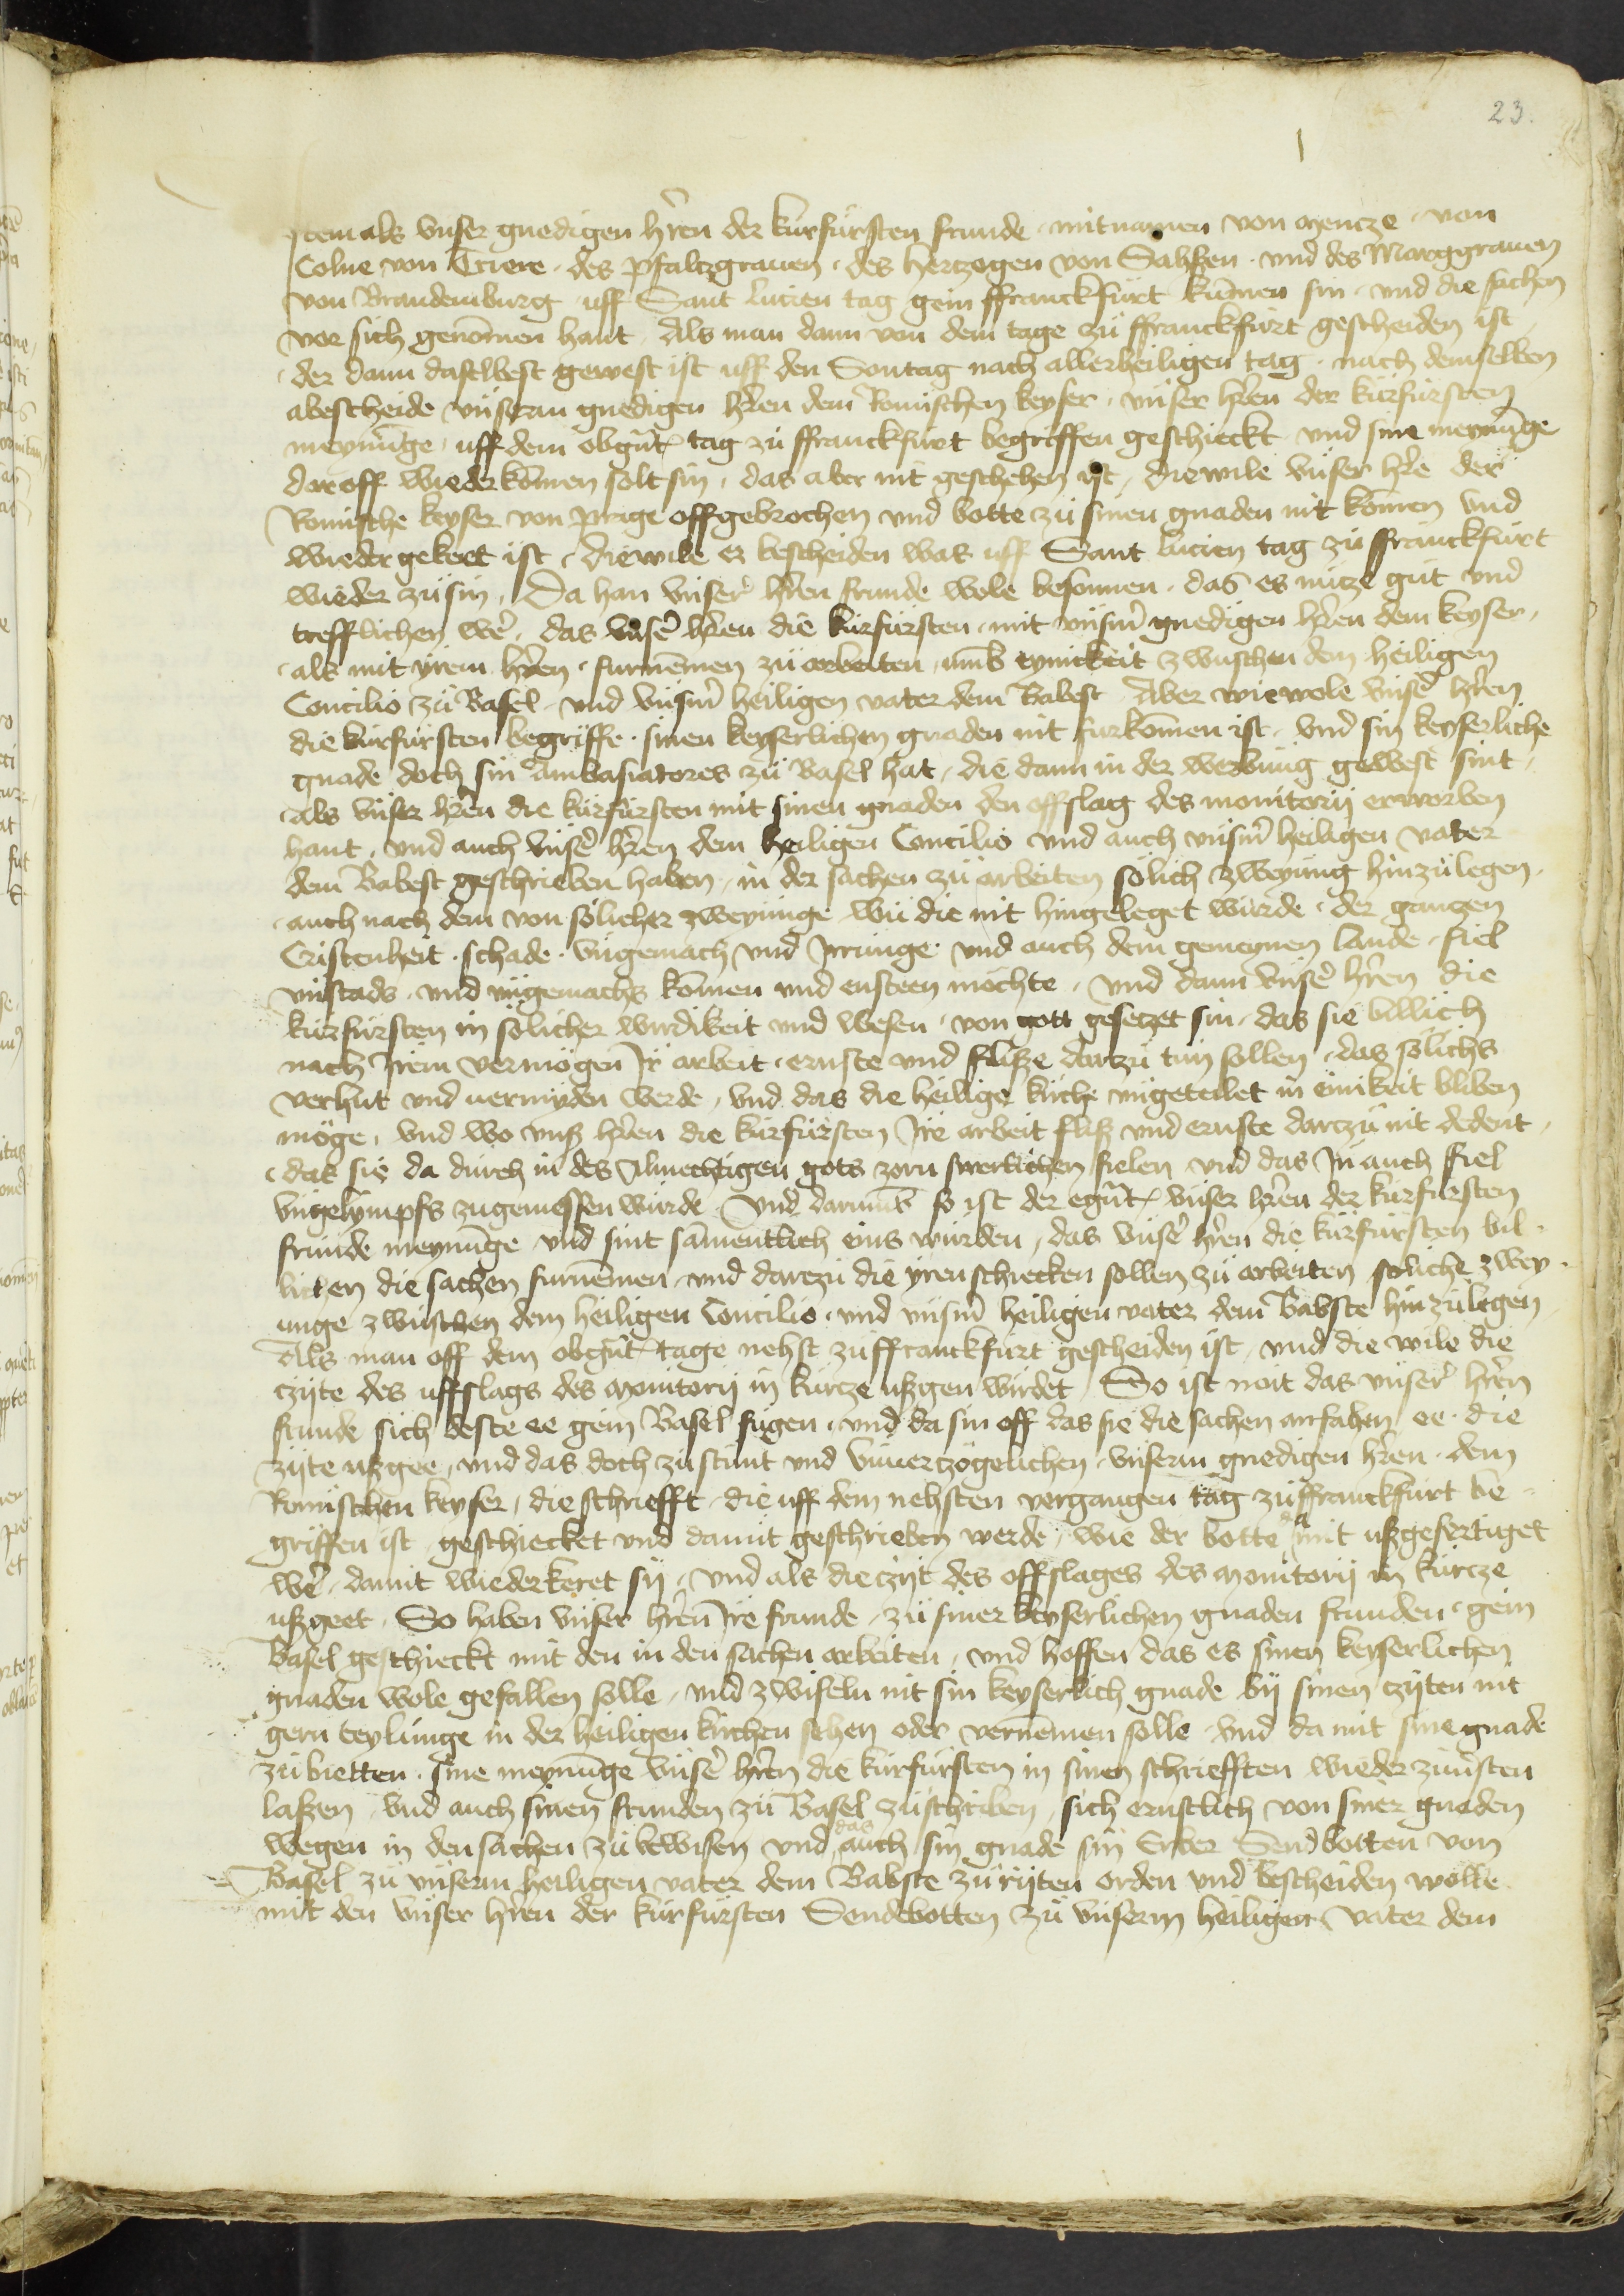 23.
Item als vnser gnedigen hr̄en der kurfursten frunde mitnamen von Mencze von
Colne von Triere des pfaltzgrauen des hertzogen von Sahssen vnd des Marggrauen
von Brandemburg uff Sant lucien tag gein ffranckfurt kūmen sin vnd die sachen
vor sich genōmen hant Als man dann von dem tage zu ffranckfurt gescheiden ist
der dann daselbest gewest ist uff den Sontag nach allerheiligen tag nach demselben
abescheide vnserm gnedigen hr̄en dem Romischen keyser vnser hr̄en der kurfursten
meynūnge uff dem obgn̄t tag zu ffranckfurt begriffen geschickt vnd sine meynūnge
daroff wiederkōmen solt sin das aber nit geschehen ist diewile vnser hr̄e der
Romische keyser von prage offgebrochen vnd botte zu sinen gnaden nit kōmen vnd
wiedergekert ist diewile er bescheiden was uff Sant lucien tag zu ffranckfurt
wieder zusin Da han vnser hr̄en frunde wole besonnen das es nutze gut vnd
trefflichen wer̄ das vnser̄ hr̄en die kurfursten mit vnserm̄ gnedigen hr̄en dem keyser
als mit yrem hr̄en furnēmen zu arbeiten vmb eynickeit zwuschen dem heiligen
Concilio zu Basel vnd vnserm̄ heiligen vater dem Babest Aber wiewole vnser̄ hr̄en
die kurfursten begriffe sinen keyserlichen gnaden nit furkōmen ist vnd sin keyserliche
gnade doch sin Ambasiatores zu Basel hat die dann in der werbung gewest sint
Als vnser hr̄en die kurfursten mit sinen gnaden den offslag des monitorij erworben
hant vnd auch vnser̄ hr̄en dem heiligen Concilio vnd auch vnserm̄ heiligen vater
dem Babest geschrieben haben in der sachen zu arbeiten solich zweyung hinzulegen
auch nach dem von solicher zweyunge wu die nit hingeleget wurde der gantzen
Cristenheit schade vngemach vnd Irrunge vnd auch dem gemeynen lande fiel
vnstads vnd vngemachs kōmen vnd ensteen mochte vnd dann vnser̄ hr̄en die
kurfursten in solicher wirdikeit vnd wesen von gott gesetzet sin das sie billich
nach Irem vermogen Ir arbeit ernste vnd flisze darzu tun sollen das solichs
verhut vnd uermyden werde vnd das die heilige kirche vngeteilet in einikeit bliben
moge vnd wo vns hr̄en die kurfursten Ire arbeit flisz vnd ernste darzu nit dedent
das sie da durch in des Almechtigen gots zorn swerlichen fielen vnd das In auch fiel
vngelympfs zugemessen wurde Vnd darumb so ist der egn̄t vnser hr̄en der kurfursten
frunde meynūnge vnd sint sāmentlich eins wurden das vnser̄ hr̄en die kurfursten bil
lichen die sachen furnēmen vnd darzu die yren schicken sollen zu arbeiten soliche zwey
unge zwuschen dem heiligen Concilio vnd vnserm̄ heiligen vater dem Babste hinzulegen
Als man off dem obgn̄t tage nehst zu ffranckfurt gescheiden ist vnd die wile die
czijte des uffslags des monitorij in kurcze uszgen wirdet So ist noit das vnser̄ hr̄en
frunde sich deste ee gein Basel fugen vnd da sin off das sie die sachen anfahen ee die
zijte uszgee vnd das doch zustunt vnd vnuerczogelichen vnserm gnedigen hr̄en dem
Romischen keyser die schriefft die uff dem nehsten vergangen tag zu ffranckfurt be
griffen ist geschicket vnd damit geschrieben werde wie der botte da mit uszgefertiget
wer̄ damit wiederkeret sij vnd als die czijt des offslages des monitorij in kurcze
uszgeet So haben vnser hr̄en Ire frunde zu siner keyserlichen gnaden frunden gein
Basel geschickt mit den in den sachen arbeiten vnd hoffen das es sinen keyserlichen
gnaden wole gefallen solle vnd zwifeln nit sin keyserlich gnade bij sinen czijten nit
gern teylunge in der heiligen kirchen sehen oder vernēmen solle vnd da mit sine gnade
zubietten sine meynūnge vnser̄ hr̄en die kurfursten in sinen schriefften wieder
laszen vnd auch sinen frunden zu Basel zuschriben sich ernstlich von siner gnaden
wegen in den sachen zu bewisen vnd das auch sin gnade sin Erber Sendbotten von
Basel zu vnserm heiligen vater dem Babste zu rijten orden vnd bescheiden wolle
mit den vnser hr̄en der kurfursten Sendebotten zu vnserm heiligen vater dem